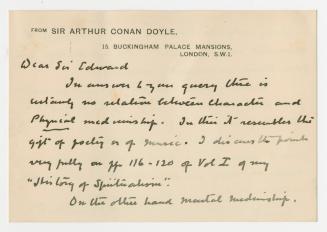 FROM SIR ARTHUR CONAN DOYLE,
15, BUCKINGHAM PALACE MANSIONS,
LONDON, S.W.1.
Dear Sir Edward
In answer to your query there is
certainly no relation between character and
Physical mediumship. In this it resembles the
gift of poetry or of music. I discuss the point
very fully on pp 116-120 of Vol I of my
"History of Spiritualism".
On the other hand mental mediumship.